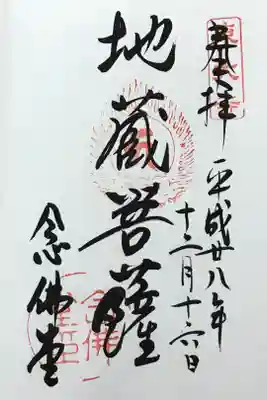 奉拝
平成廿八年
十二月十六日
地蔵菩薩
念佛堂